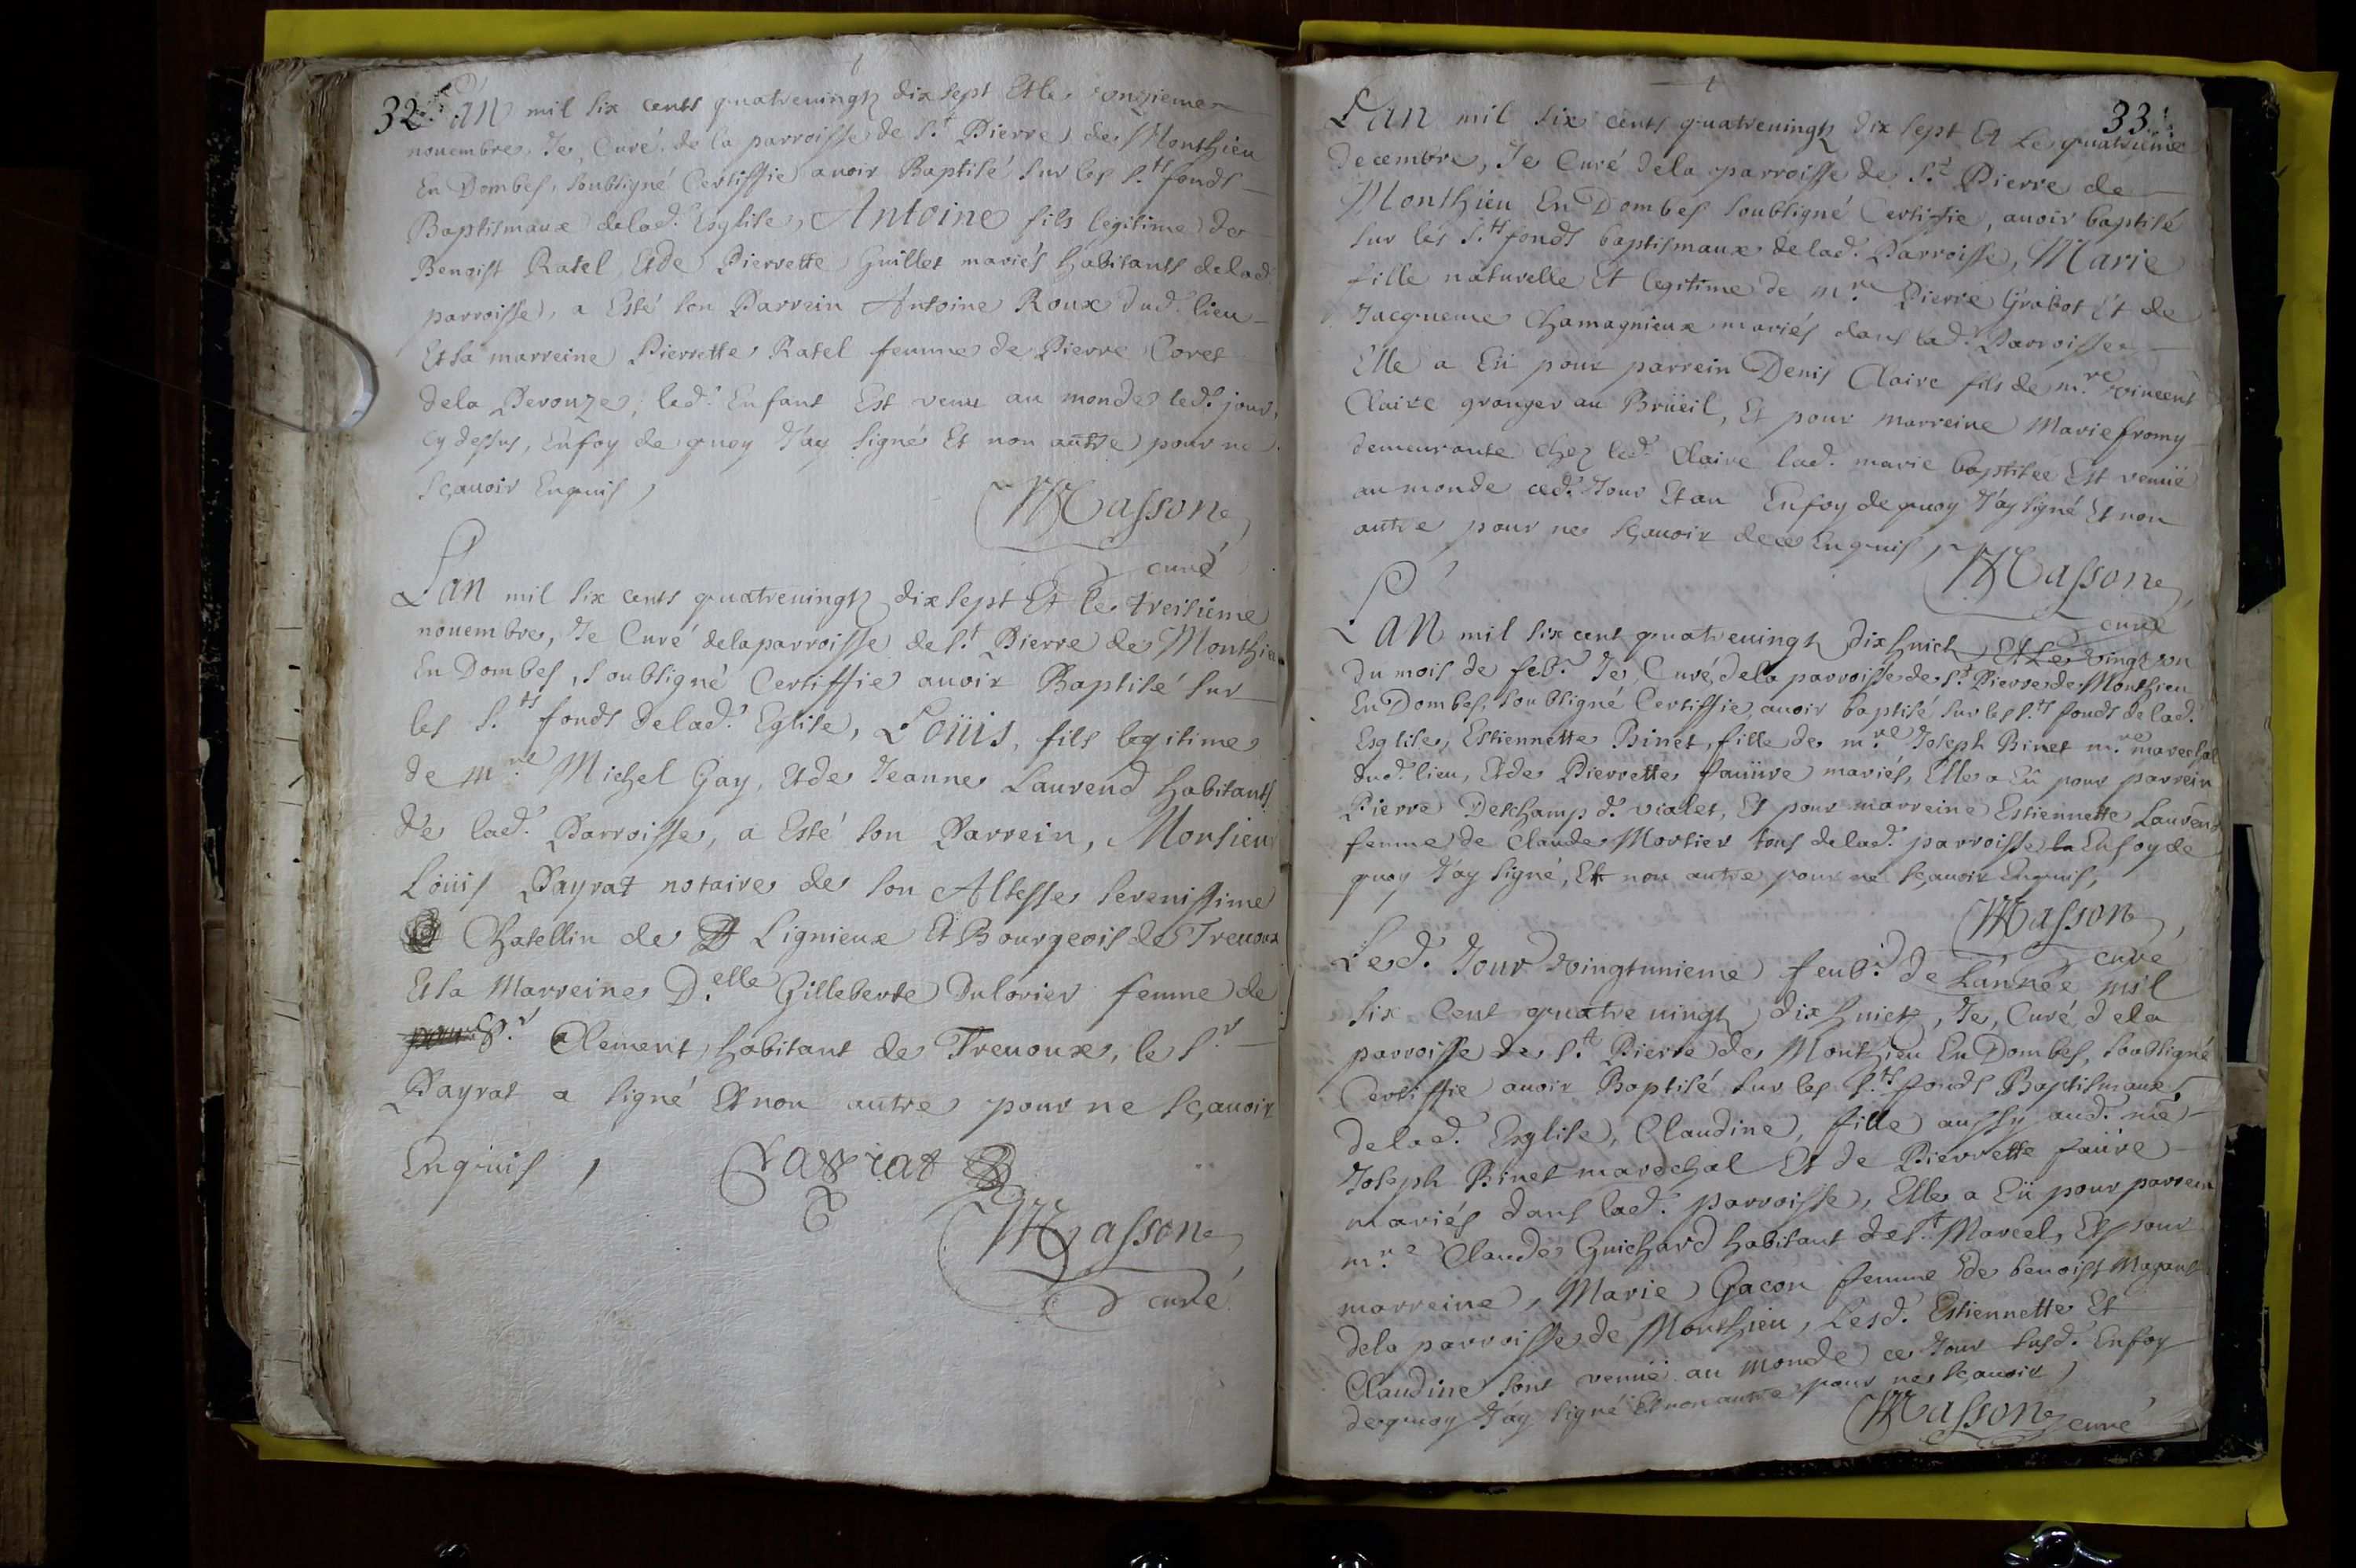 32
Lan mil six cents quatreuingtz dix sept Et le onzieme
nouembre, Je Curé de la parroisse de St. Pierre de Monthieu
En Dombes, soubsigné Certiffie auoir Baptisé sur les Sts. fonds
Baptismaux delad. Esglise, Antoine fils legitime de
Benoist Ratel, Et de Pierrette Guillet mariés habitants delad.
parroisse, a Esté son Parrein Antoine Roux dud. lieu
Et sa marreine Pierrette Ratel femme de Pierre Coret
dela Perouze, led. Enfant Est venu au monde led. jour,
cy dessus, Enfoy de quoy J'ay signé Et non autre pour ne
sçauoir Enquis,
Masson
curé
Lan mil six cents quatreuingtz dix sept Et le treisieme
nouembre, Je Curé dela parroisse de St. Pierre de Monthieu
En Dombes, soubsigné Certiffie auoir Baptisé sur
les Sts. fonds delad. Eglise, Loüis, fils legitime
de mre. Michel Gay, Et de Jeanne Laurend habitants
de lad. Parroisse, a Esté son Parrein, Monsieur
Loüis Payrat notaire de son Altesse serenissime
Chatellin de Lignieux Et Bourgeois de Treuoux
Et la Marreine D.elle Gilleberte Dulorier femme de
Sr. Clement, habitant de Treuoux, le Sr.
Payrat a signé Et non autre pour ne sçauoir
Enquis,
Payrat
Masson
curé
33
Lan mil six cents quatreuingtz dix sept Et Le quatrieme
decembre, Je Curé dela parroisse de St. Pierre de
Monthieu En Dombes soubsigné Certiffie, auoir baptisé
sur les Sts. fonds baptismaux delad. Parroisse, Marie
fille naturelle Et legitime de mre. Pierre Grabot Et de
Jacqueme Chamagnieux mariés dans lad. Parroisse
Elle a Eü pour parrein Denis Claire fils de mre. vincent
Claire granger au Brüeil, Et pour marreine Marie fromy
demeurante chez led. Claire lad. marie baptisee Est venüe
au monde ced. Jour Et an Enfoy de quoy J'ay signé Et non
autre pour ne sçauoir de ce Enquis,
Masson
curé
Lan mil six cent quatreuingtz dix huict Et Le vingt un
du mois de feb. Je Curé dela parroisse de St. Pierre de Monthieu
En Dombes, soubsigné Certiffie, auoir baptisé sur les Sts. fonds delad.
Esglise, Estiennette Binet, fille de mre. Joseph Binet mre. marechal
dud. lieu, Et de Pierrette fauüre mariés, Elle a Eü pour parrein
Pierre Deschamp d. vialet, Et pour marreine Estiennette Laurend
femme de Claude Mortier tous delad. parroisse Enfoy de
quoy J'ay signé, Et non autre pour ne sçauoir Enquis,
Masson
curé
Led. Jour vingtunieme feub. de Lannée mil
six Cent quatre uingtz dix huict, Je, Curé dela
parroisse de St. Pierre de Monthieu En Dombes, soubsigné
Certiffie auoir Baptisé sur les Sts. fonds Baptismaux
delad. Esglise, Claudine, fille aussy aud. me.
Joseph Binet marechal Et de Pierrette faüre
mariés dans lad. parroisse, Elle a Eü pour parrein
mre. Claude Guichard habitant de St. Marcel, Et pour
marreine, Marie Gacon femme de benoist
dela parroisse de Monthieu, Lesd. Estiennette Et
Claudine sont venüe au monde ce Jour susd. Enfoy
de quoy J'ay signé Et non autre pour ne sçauoir,
Masson curé